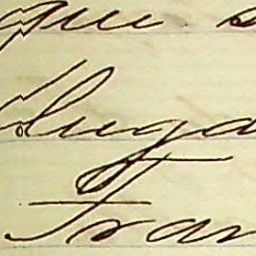 que s
luga
Fran